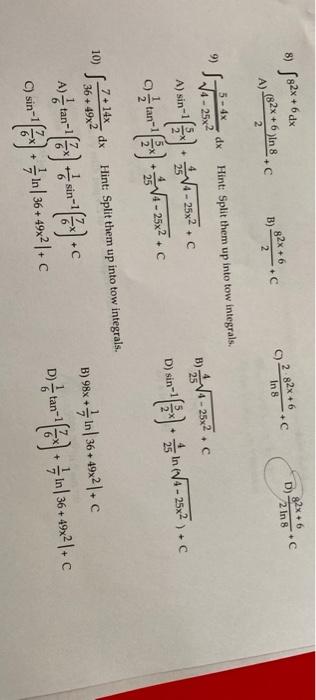 8) ∫ 8^(2x + 6) dx
A) (8^(2x + 6)) ln 8 / 2 + C
B) 8^(2x + 6) / 2 + C
C) 2 · 8^(2x + 6) / ln 8 + C
D) 8^(2x + 6) / 2 ln 8 + C
9) ∫ (5 - 4x) / √(4 - 25x²) dx Hint: Split them up into tow integrals.
A) sin⁻¹(5/2 x) + 4/25 √(4 - 25x²) + C
B) 4/25 √(4 - 25x²) + C
C) 1/2 tan⁻¹(5/2 x) + 4/25 √(4 - 25x²) + C
D) sin⁻¹(5/2 x) + 4/25 ln (√(4 - 25x²)) + C
10) ∫ (7 + 14x) / (36 + 49x²) dx Hint: Split them up into tow integrals.
A) 1/6 tan⁻¹(7/6 x) + 1/6 sin⁻¹(7/6 x) + C
B) 98x + 1/7 ln | 36 + 49x² | + C
C) sin⁻¹(7/6 x) + 1/7 ln | 36 + 49x² | + C
D) 1/6 tan⁻¹(7/6 x) + 1/7 ln | 36 + 49x² | + C